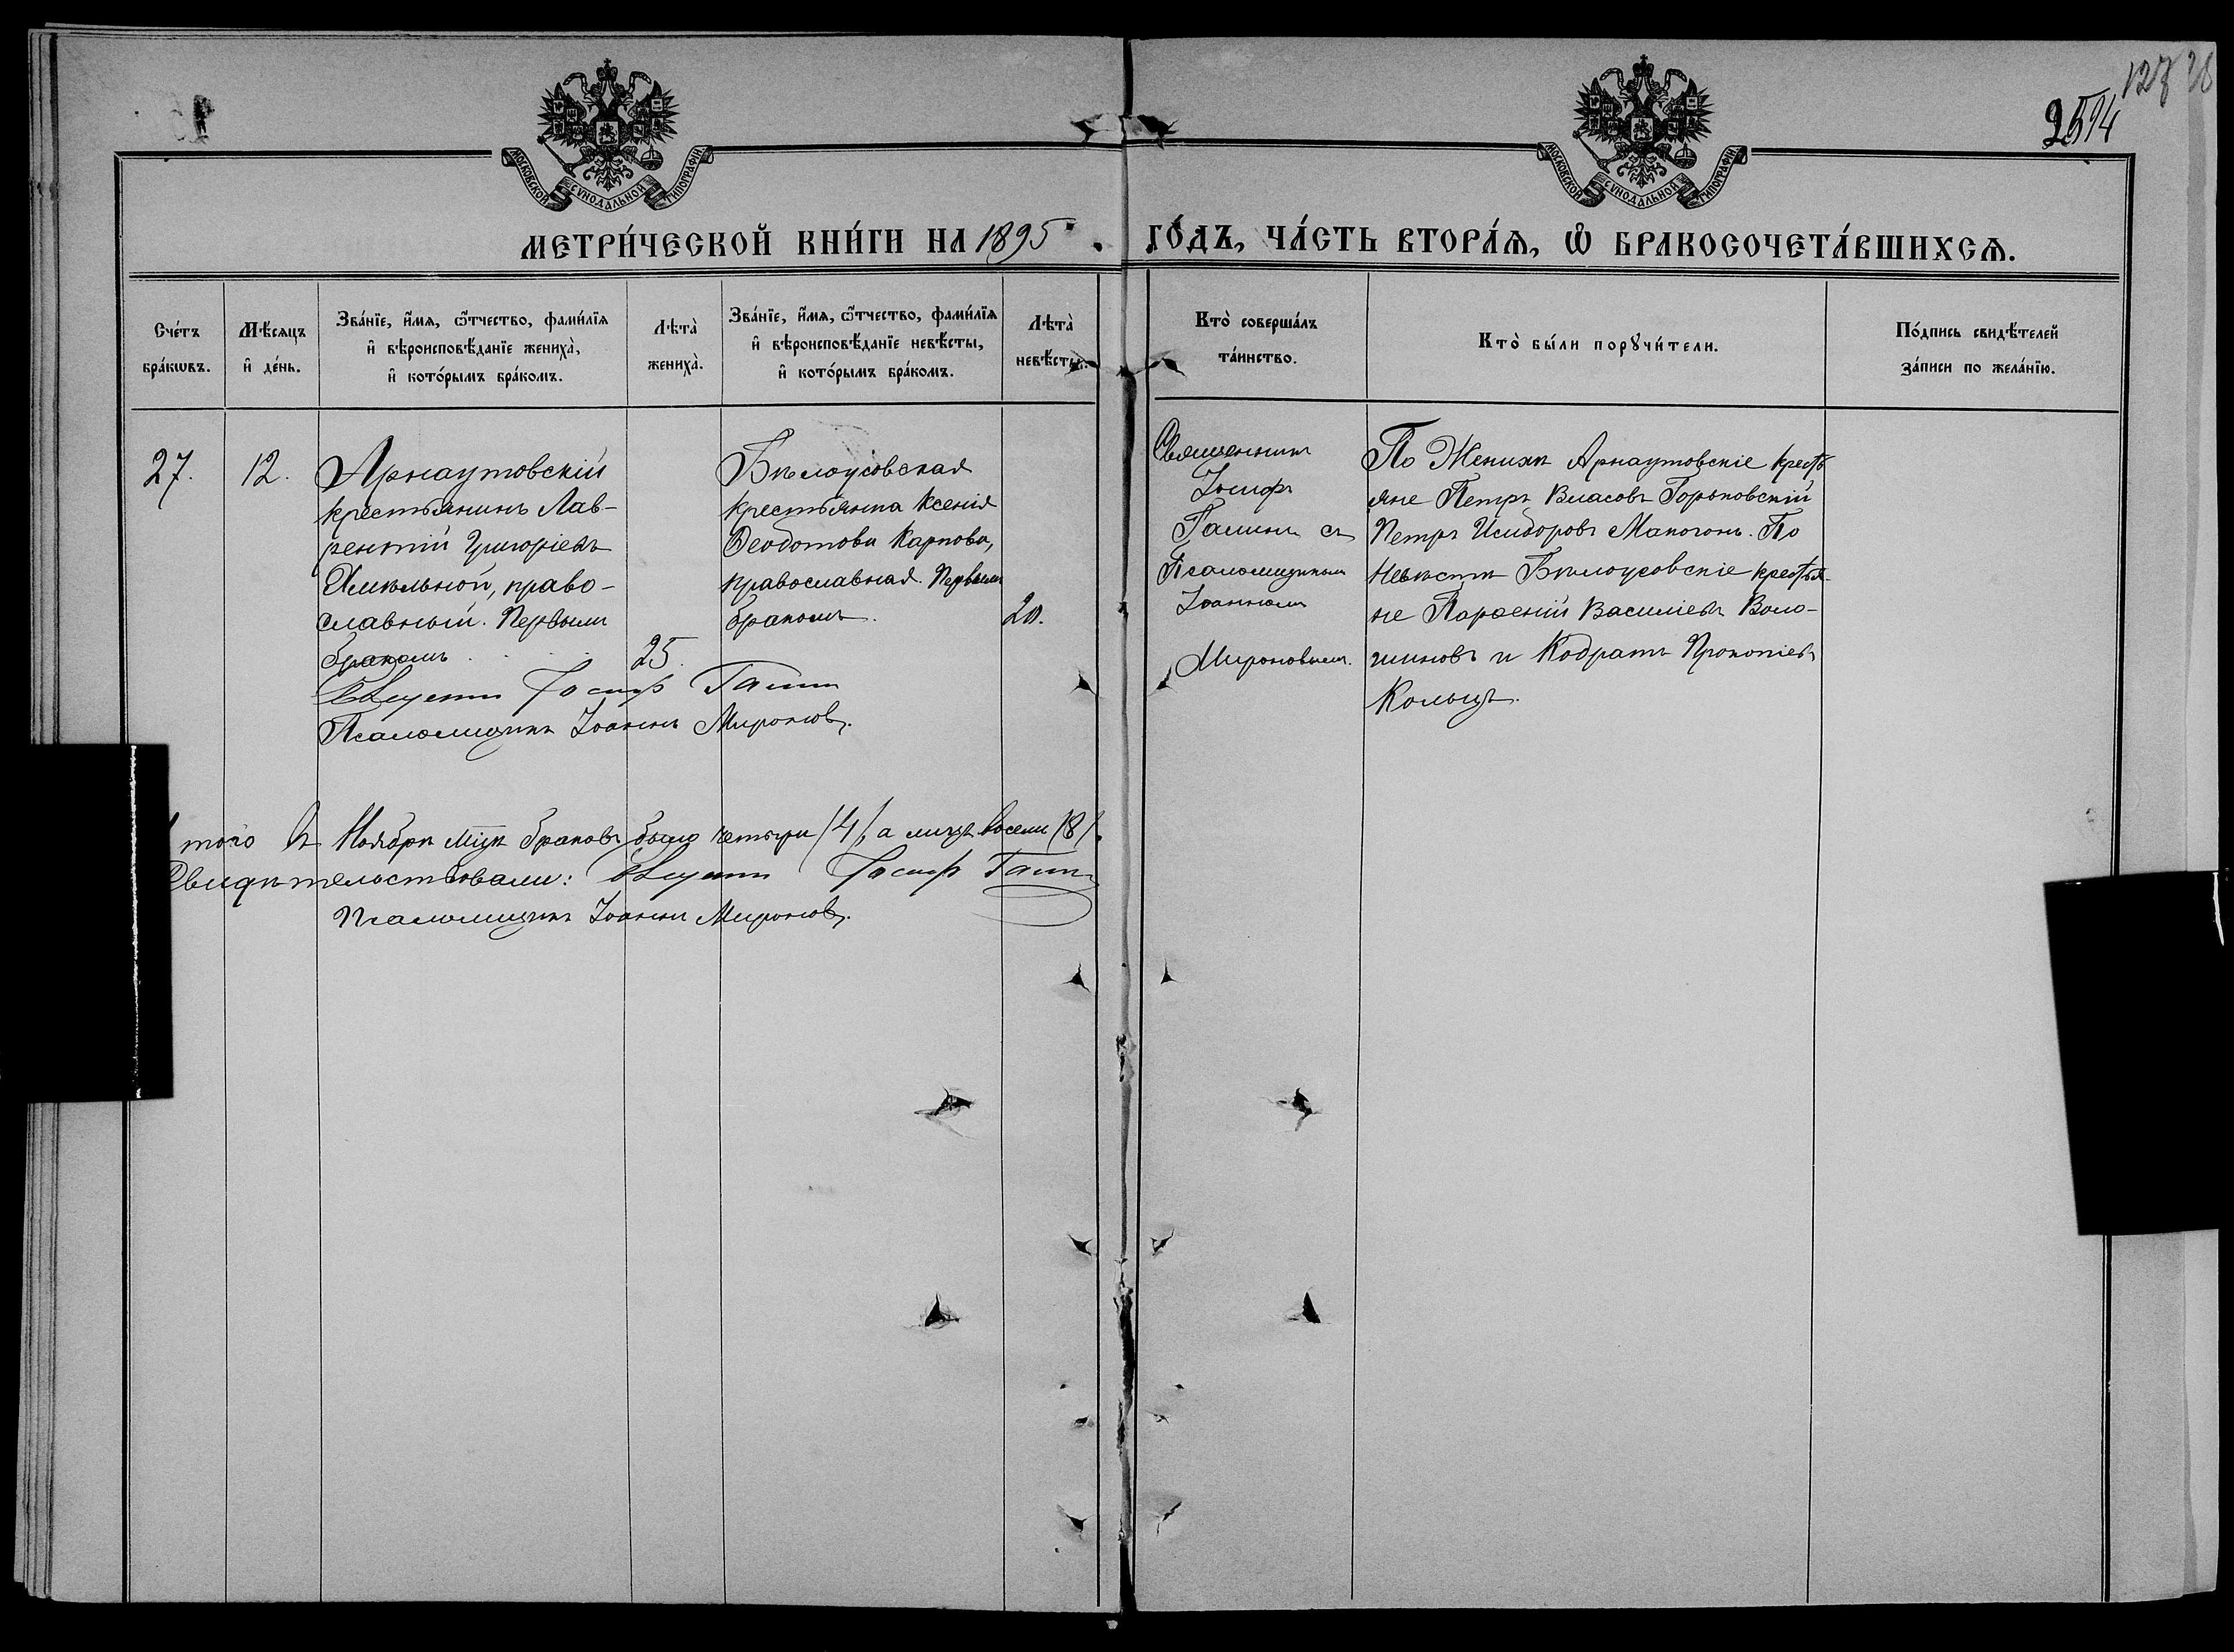 127 28
2514
МОСКОВСКОЙ СѴНОДАЛЬНОЙ ТИПОГРАФІИ
МОСКОВСКОЙ СѴНОДАЛЬНОЙ ТИПОГРАФІИ
МЕТРИ́ЧЕСКОЙ КНИ́ГИ НА 1895 ГО́ДЪ, ЧА́СТЬ ВТОРА́Ѧ, Ѡ҆ БРАКОСОЧЕТА́ВШИХСѦ.
Сче́тъ бра́кѡвъ.
Мѣ́сяцъ и҆ де́нь.
Зва́нїе, и҆́мѧ, ѻ҆́тчество, фами́лїѧ и҆ вѣроисповѣ́данїе жениха̀, и҆ кото́рымъ бра́комъ.
Лѣта̀ жениха̀.
Зва́нїе, и҆́мѧ, ѻ҆́тчество, фами́лїѧ и҆ вѣроисповѣ́данїе невѣ́сты, и҆ кото́рымъ бра́комъ.
Лѣта̀ невѣ́сты.
Кто̀ соверша́лъ та́инство.
Кто̀ бы́ли порꙋчи́тели.
По́дпись свидѣ́телей за́писи по жела́нїю.
27.
12.
Арнаутовскій
крестьянинъ Лав-
рентій Григоріевъ
Хмѣльной, право-
славный. Первымъ
бракомъ
25.
Бѣлоусовская
крестьянка Ксенія
Ѳеодотова Карпова,
православная. Первымъ
бракомъ.
20.
Священникъ
Іосифъ
Галинъ съ
Псаломщикомъ
Іоанномъ
Мироновымъ.
По Женихѣ Арнаутовскіе кресть-
яне Петръ Власовъ Горьковскій
Петръ Исидоровъ Макогонъ. По
Невѣстѣ Бѣлоусовскіе крестья-
не Парѳеній Василіевъ Воло-
шиновъ и Кодратъ Прокопіевъ
Кольцъ.
Іосифъ Галинъ
Псаломщикъ Іоаннъ Мироновъ.
того въ Ноябрѣ мцѣ браковъ было четыре /4/, а лицъ восемь /8/.
Свидѣтельствовали: Іосифъ Галинъ
Псаломщикъ Іоаннъ Мироновъ.